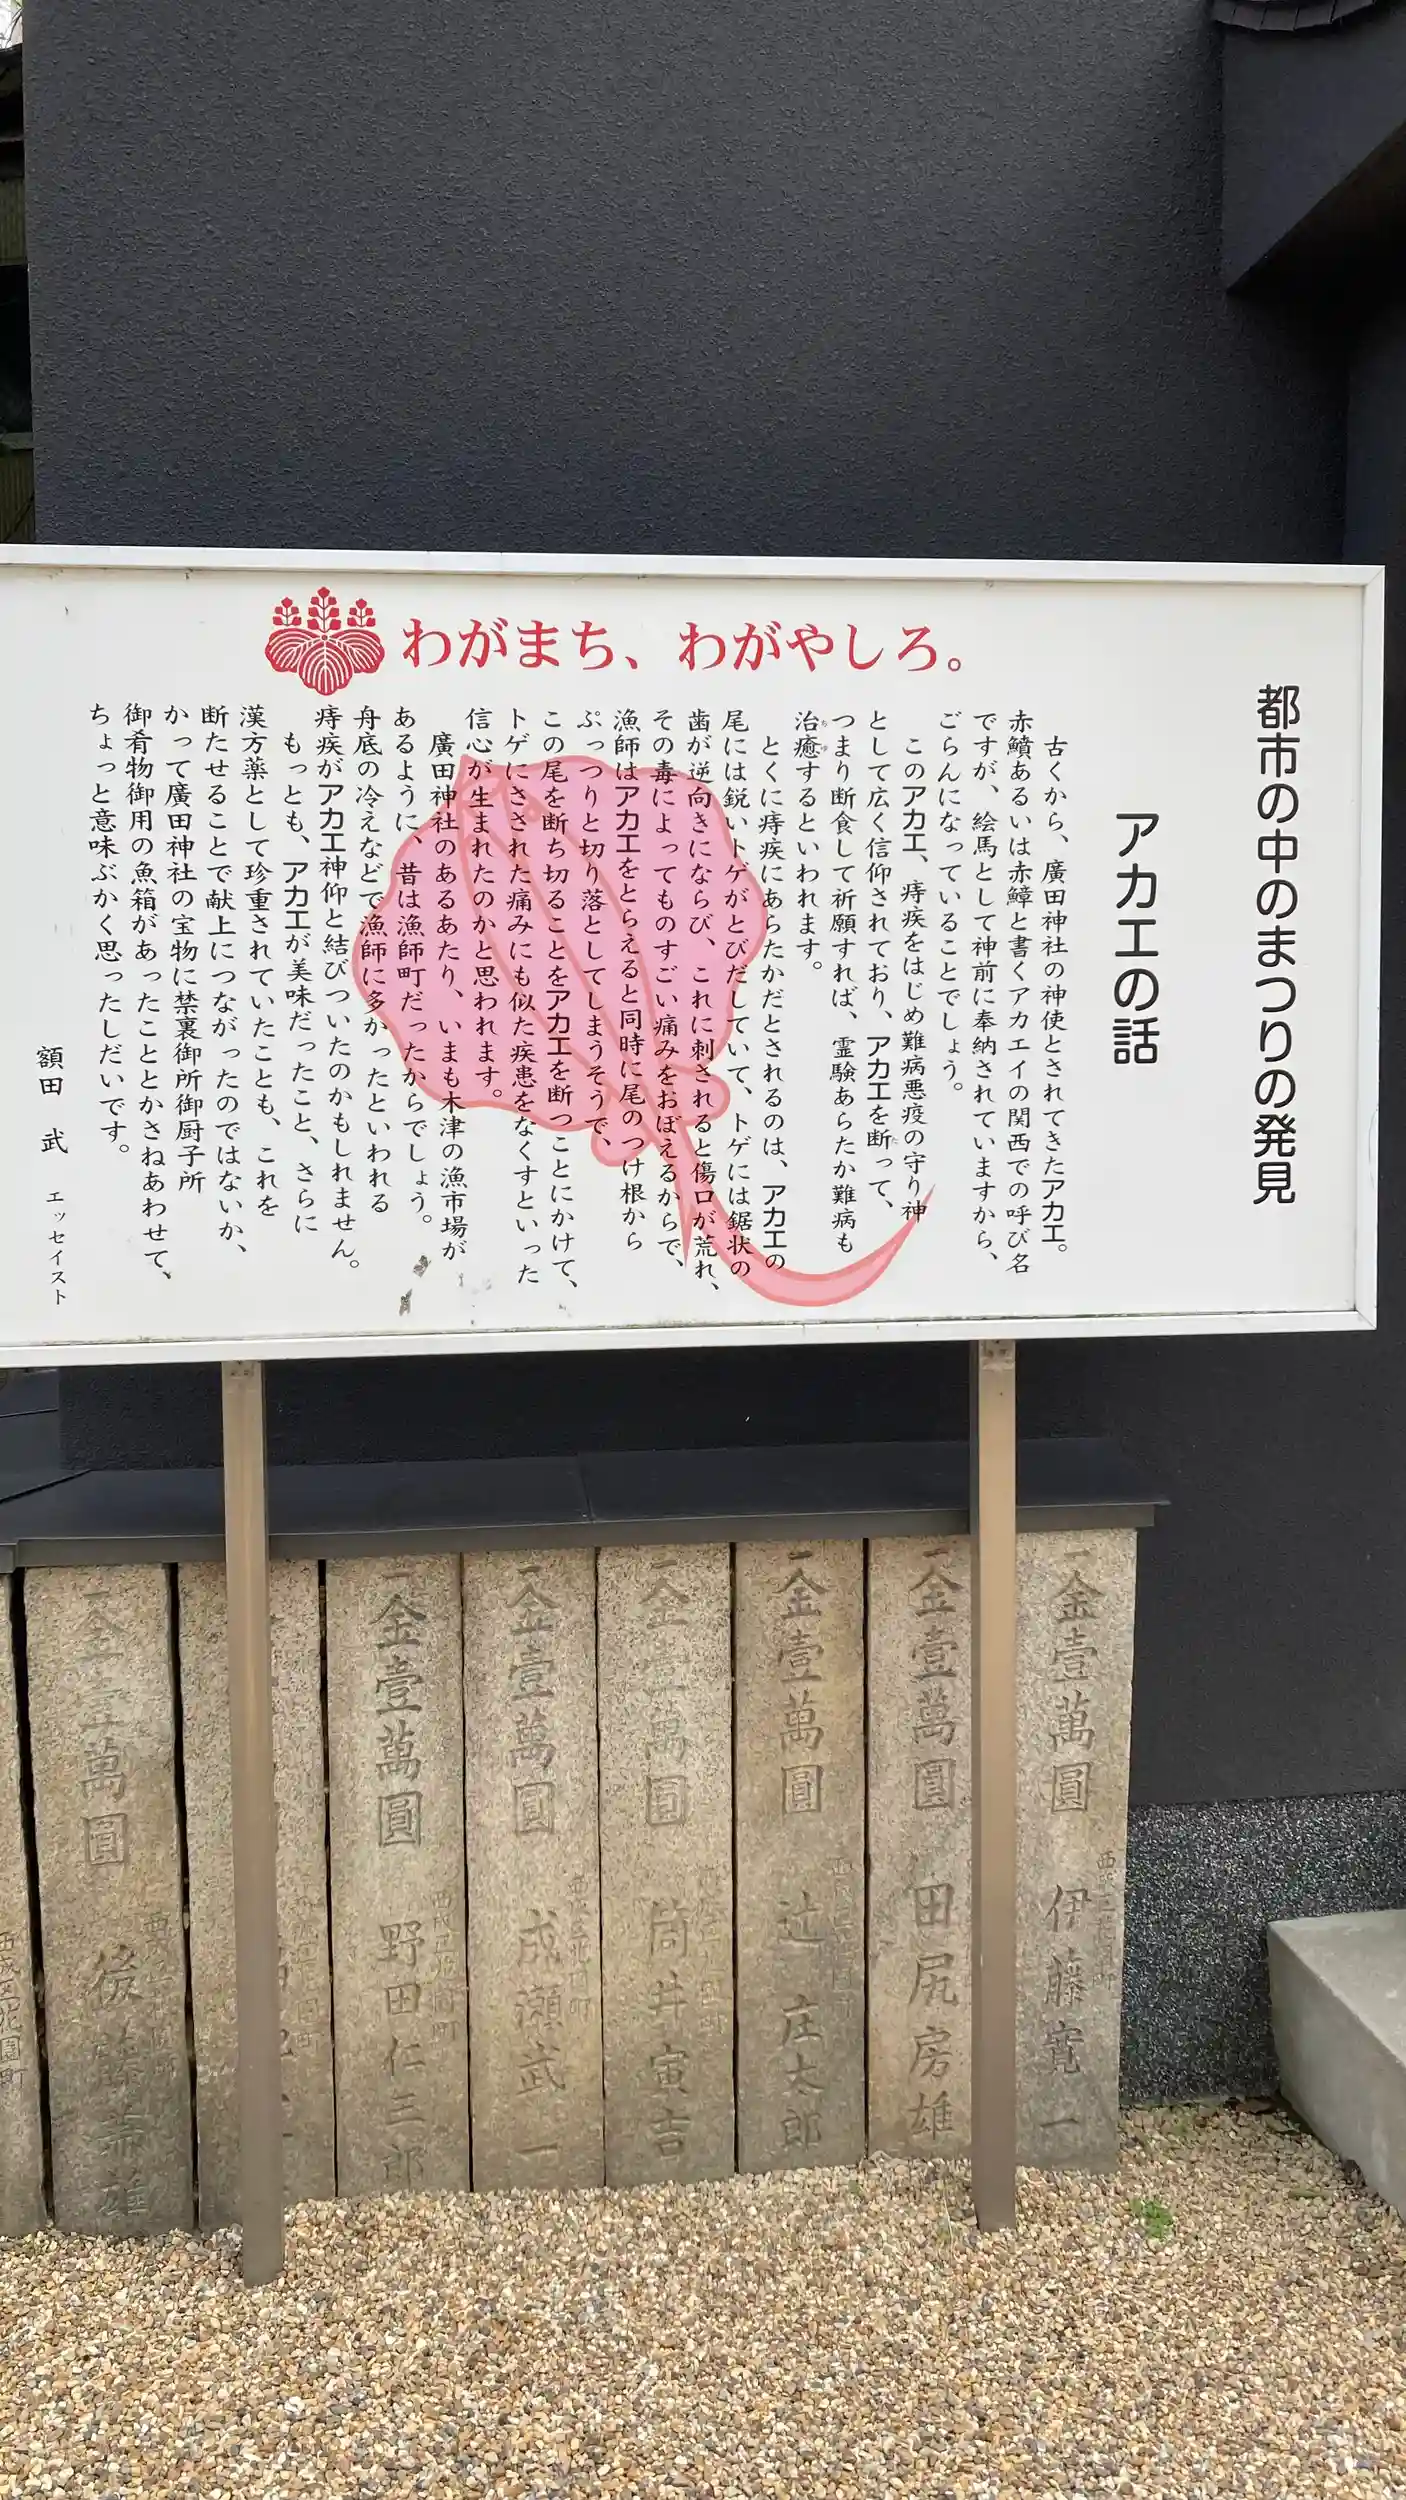 都市の中のまつりの発見
アカエの話
わがまち、わがやしろ。
古くから、廣田神社の神使とされてきたアカエ。
赤鱝あるいは赤鱏と書くアカエイの関西での呼び名
ですが、絵馬として神前に奉納されていますから、
ごらんになっていることでしょう。
このアカエ、痔疾をはじめ難病悪疫の守り神
として広く信仰されており、アカエを断って、
つまり断食して祈願すれば、霊験あらたか難病も
治癒するといわれます。
とくに痔疾にあらたかだとされるのは、アカエの
尾には鋭いトゲがとびだしていて、トゲには鋸状の
歯が逆向きにならび、これに刺されると傷口が荒れ、
その毒によってものすごい痛みをおぼえるからで、
漁師はアカエをとらえると同時に尾のつけ根から
ぷっつりと切り落としてしまうそうで、
この尾を断ち切ることをアカエを断つことにかけて、
トゲにさされた痛みにも似た疾患をなくすといった
信心が生まれたのかと思われます。
廣田神社のあるあたり、いまも木津の漁市場が
あるように、昔は漁師町だったからでしょう。
舟底の冷えなどで漁師に多かったといわれる
痔疾がアカエ神仰と結びついたのかもしれません。
もっとも、アカエが美味だったこと、さらに
漢方薬として珍重されていたことも、これを
断たせることで献上につながったのではないか、
かって廣田神社の宝物に禁裏御所御厨子所
御肴物御用の魚箱があったこととかさねあわせて、
ちょっと意味ぶかく思ったしだいです。
額田 武 エッセイスト
一金壹萬圓 伊藤寛一
一金壹萬圓 田尻房雄
一金壹萬圓 辻庄太郎
一金壹萬圓 筒井寅吉
一金壹萬圓 成瀬武一
一金壹萬圓 野田仁三郎
一金壹萬圓 後藤
西成区花園町